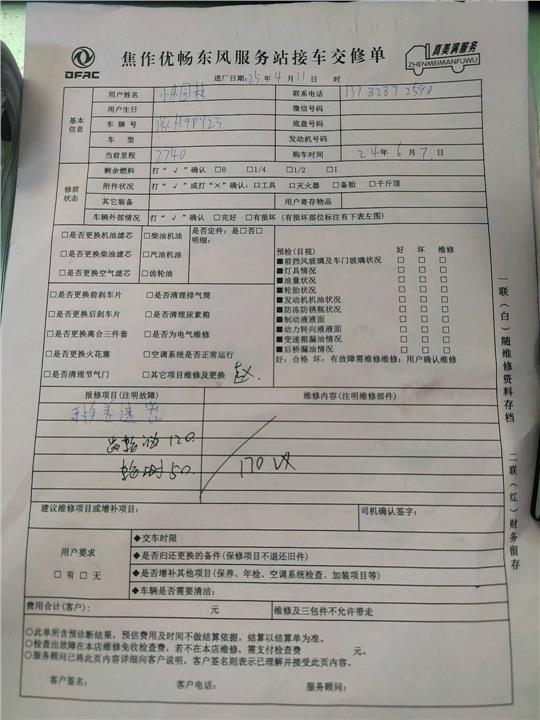 DFAC
焦作优畅东风服务站接车交修单
真美满服务
ZHENMEIMANFUWU
进厂日期:25年4月11日 时
基本信息
用户姓名
联系电话
用户生日
微信号码
车牌号
底盘号码
车型
发动机号码
当前里程 7740
购车时间 24年6月7日
修前状态
剩余燃料 打“√”确认 □0 □1/4 □1/2 □1
附件状况 打“√”或打“×”确认:□工具 □灭火器 □备胎 □千斤顶
其它装备
用户寄存物品
车辆外部情况 打“√”确认 □完好 □有损坏(有损坏部位标注有下表左图)
□是否更换机油滤芯 □柴油机油 是否定件:是□否□
□是否更换柴油滤芯 □汽油机油 明细:
□是否更换空气滤芯 □齿轮油
□是否更换前刹车片 □是否清理排气筒
□是否更换后刹车片 □是否清理尿素箱
□是否更换离合三件套 □是否为电气维修
□是否更换火花塞 □空调系统是否正常运行
□是否清理节气门 □其它项目维修及更换
预检(目视) 好 坏 维修
■前挡风玻璃及车门玻璃状况 □ □ □
■灯具情况 □ □ □
■油量状况 □ □ □
■轮胎状况 □ □ □
■发动机机油状况 □ □ □
■防冻防锈瓶状况 □ □ □
■制动液液面 □ □ □
■动力转向液液面 □ □ □
■变速箱漏油情况 □ □ □
■后桥漏油情况 □ □ □
好:合格 坏:有故障需维修维修:用户确认维修
报修项目(注明故障)
维修内容(注明维修部件)
齿轮油 120
50
170
建议维修项目或增补项目:
司机确认签字:
用户要求
□有□无
◆交车时限
◆是否归还更换的备件(保修项目不退还旧件)
◆是否增补其他项目(保养、年检、空调系统检查、加装项目等)
◆车辆是否需要清洁:
费用合计(客户): 元
维修及三包件不允许带走
○此单所含预诊断结果,预估费用及时间不做结算依据,结算以结算单为准。
○检查出故障在本店维修免收检查费,若不在本店维修,需支付检查费 元。
○服务顾问已将此页内容详细向客户说明,客户签名则表示已理解并接受此页内容。
客户签名: 客户电话: 服务顾问:
一联(白)随维修资料存档
二联(红)财务留存